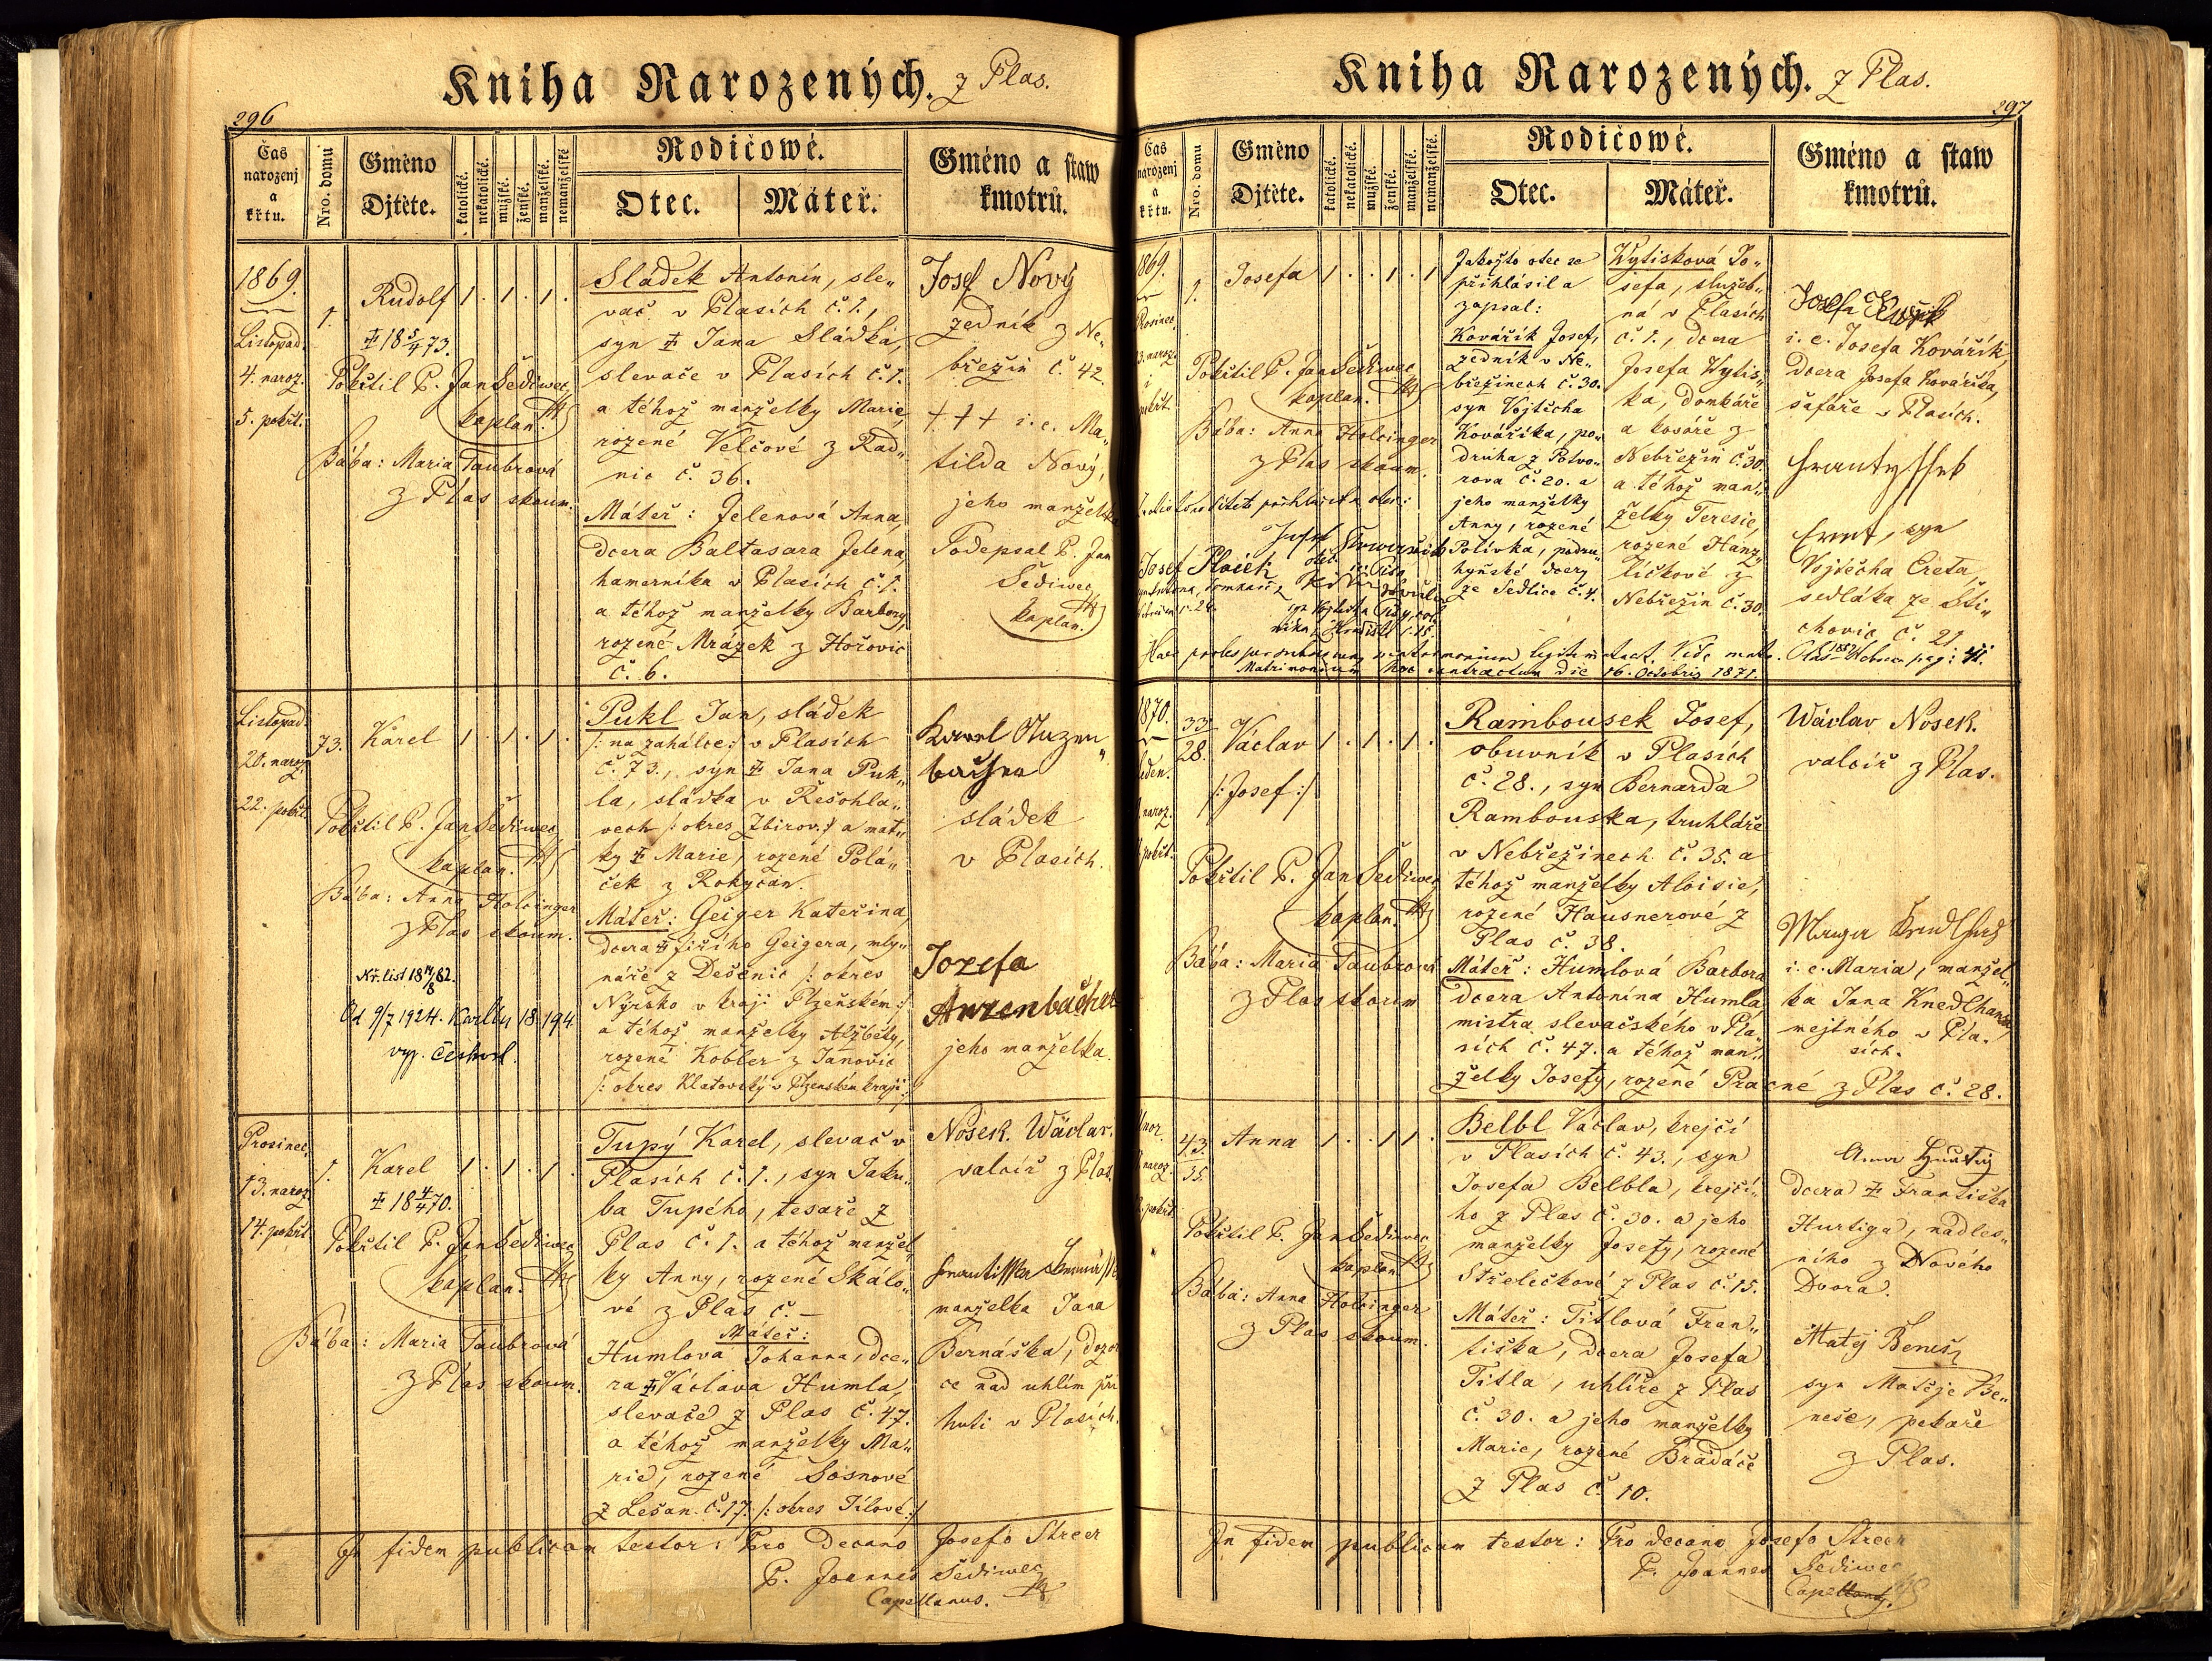 Kniha Narozených. z Plas.
296
Čas narozenj a křtu.
Nro. domu
Gméno Djtěte.
katolické.
nekatolické.
mužské.
ženské.
manželské.
nemanželské
Rodičowé.
Otec.
Máteř.
Gméno a staw kmotrů.
1869.
Listopad.
4. naroz.
5. pokřt.
1.
Rudolf 1 . 1 . 1 .
18 5/4 73.
Pokřtil P. Jan Šediwec,
kaplan.
Bába: Maria Taubrová
z Plas skoum.
Sládek Antonín, sle„
vač v Plasích č. 1.,
syn Jana Sládka,
slevače v Plasích č. 1.
a téhož manželky Marie,
rozené Velčové z Rad„
nic č. 36.
Máteř: Jelenová Anna,
dcera Baltasara Jelena,
hamerníka v Plasích č. 1.
a téhož manželky Barbory,
rozené Mrázek z Hořovic
č. 6.
Josef Nový
zedník z Ne„
břežin č 42.
+++ i. e. Ma„
tilda Nový,
jeho manželka
Podepsal P. Jan
Šediwec,
kaplan.
Listopad.
20. naroz.
22. pokřt
73.
Karel 1 . 1 . 1 .
Pokřtil P. Jan Šediwec,
kaplan.
Bába: Anna Holzinger
z Plas skoum.
Kř. list 18 14/8 82.
Od 9/7 1924. Karlín 18.194
Pukl Jan, sládek
/: na zahálce :/ v Plasích
č. 73., syn Jana Puk„
la, sládka v Řešohla„
vech /: okres Zbirov :/ a mat„
ky Marie, rozené Polá„
ček z Rokycan.
Máteř: Geiger Kateřina,
dcera Jiřího Geigera, mly„
náře z Dešenic /: okres
Nýrsko v kraji Plzeňském :/
a téhož manželky Alžběty,
rozené Kobler z Janovic
/: okres Klatovský v Plzenském kraji :/
Karel Anzen„
bacher
sládek
v Plasích.
Jozefa
Anzenbacher
jeho manželka.
Prosinec.
13. naroz.
14. pokřt
1.
Karel 1 . 1 . 1 .
18 4/4 70.
Pokřtil P. Jan Šediwec,
kaplan.
Bába: Maria Taubrová
z Plas skoum.
Tupý Karel, slevač v
Plasích č. 1., syn Jaku„
ba Tupého, tesaře z
Plas č. 1. a téhož manžel„
ky Anny, rozené Skálo„
vé z Plas č. –
Máteř:
Humlova Johanna, dce„
ra Václava Humla,
slevače z Plas č. 47.
a téhož manželky Ma„
rie, rozené Sosnové
z Lešan č. 17. /: okres Jílové :/
Nosek. Wáclav.
valcíř z Plas.
manželka Jana
Bernáška, dozor
ce nad uhlím při
huti v Plasích.
In fidem publicam testor: Pro decano Josefo Streer
P. Joannes Šediwec,
Capellanus.
Kniha Narozených. z Plas.
297
Čas narozenj a křtu.
Nro. domu
Gméno Djtěte.
katolické.
nekatolické.
mužské.
ženské.
manželské.
nemanželské.
Rodičowé.
Otec.
Máteř.
Gméno a staw kmotrů.
1869.
Prosinec
naroz.
i
pokřt.
1.
Josefa 1 . . 1 . 1
Pokřtil P. Jan Šediwec,
kaplan.
Bába: Anna Holzinger
z Plas skoum.
Josef Ploick
Jakožto otec se
přihlásil a
zapsal:
Kovářík Josef,
zedník v Ne„
břežinech č. 30.
syn Vojtěcha
Kováříka, po„
druha z Potvo„
rova č. 20. a
jeho manželky
Anny, rozené
Polívka, podru„
hyňské dcery
ze Sedlice č. 4.
Wytisková Jo„
sefa, služeb„
ná v Plasích
č. 1., dcera
Josefa Wytis„
ka, domkáře
a kováře z
Nebřežin č. 30.
a téhož man„
želky Teresie,
rozené Hanz„
líčkové z
Nebřežin č. 30.
i. e. Josefa Kovářík,
dcera Josefa Kováříka,
šafáře v Plasích.
Frantyssek
Cret, syn
Vojtěcha Creta,
sedláka ze Ští„
chovic č. 21.
Matrimonium hoc contractum die 16. Octobris 1871.
1870.
Leden.
naroz.
pokřt.
33
28.
Václav 1 . 1 . 1 .
/: Josef :/
Pokřtil P. Jan Šediwec,
kaplan.
Bába: Maria Taubrová
z Plas skoum
Rambousek Josef,
obuvník v Plasích
č. 28., syn Bernarda
Rambouska, truhláře
v Nebřežinech č. 35. a
téhož manželky Aloisie,
rozené Hausnerové z
Plas č. 38.
Máteř: Humlová Barbora
dcera Antonína Humla
mistra slevačského v Pla„
sích č. 47. a téhož man„
želky Josefy, rozené Pracné z Plas č. 28.
Wáclav Nosek.
valcíř z Plas.
i. e. Maria, manžel„
ka Jana Knedlhanse,
nejtného v Pla„
sích.
Únor.
naroz.
pokřt.
43.
35.
Anna 1 . . 1 1 .
Pokřtil P. Jan Šediwec,
kaplan
Bába: Anna Holzinger
z Plas skoum.
Belbl Václav, krejčí
v Plasích č. 43., syn
Josefa Belbla, krejčí„
ho z Plas č. 30. a jeho
manželky Josefy, rozené
Střelečkové z Plas č. 15.
Máteř: Titlová Fran„
tiška, dcera Josefa
Titla, uhlíře z Plas
č. 30. a jeho manželky
Marie, rozené Bradáče
z Plas č. 10.
Anna Hurtig
dcera Františka
Hurtiga, nadles„
ního z Nového
Dvora.
Matěj Beneš,
syn Matěje Be„
neše, pekaře
z Plas.
In fidem publicam testor: Pro decano Josefo Streer
P. Joannes Šediwec
Capellanus.